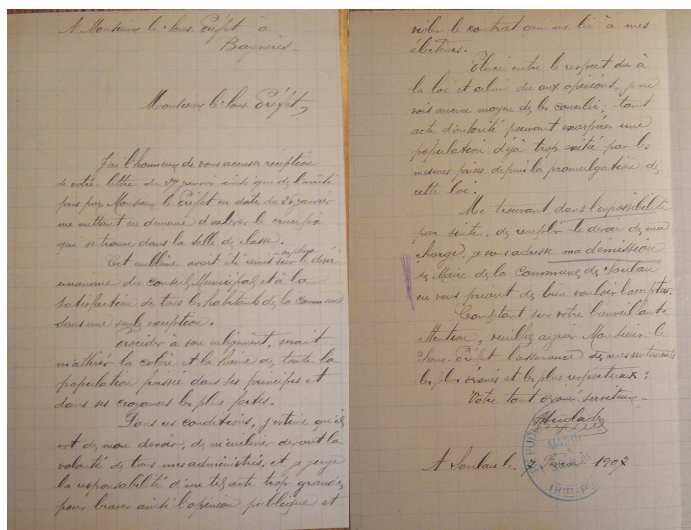 A Monsieur le Sous Préfet à
Bagnères.
Monsieur le Sous Préfet,
J'ai l'honneur de vous accuser réception
de votre lettre du 29 janvier ainsi que de l'arrêté
pris par Monsieur le Préfet en date du 26 janvier
me mettant en demeure d'enlever le crucifix
qui se trouve dans la salle de classe.
Cet emblème avait été remis sur le désir
unanime du conseil Municipal et à la
satisfaction de tous les habitants de la commune
sans une seule exception.
Procéder à son enlèvement, serait
m'attirer la colère et la haine de toute la
population froissée dans ses principes et
dans ses croyances les plus
Dans ces conditions, j'estime qu'il
est de mon devoir, de m'incliner devant la
volonté de tous mes administrés, et je
la responsabilité d'une tel acte trop grande
pour braver ainsi l'opinion publique et
violer le contrat qui me lie à mes
électeurs.
Placé entre le respect dû à
la loi et celui dû aux opinions, je ne
vois aucun moyen de les concilier; tout
acte d'autorité pouvant exaspérer une
population déjà trop excitée par les
mesures prises depuis la promulgation de
cette loi.
Me trouvant dans l'impossibilité
par suite, de remplir le devoir de ma
charge, je vous adresse ma démission
de Maire de la Commune de Soulan
en vous priant de bien vouloir l'accepter.
Comptant sur votre bienveillante
attention, veuillez agréer Monsieur le
Sous-Préfet l'assurance de mes sentiments
les plus dévoués et les plus respectueux:
Votre tout dévoué serviteur.
A Soulan le 7 Février 1907